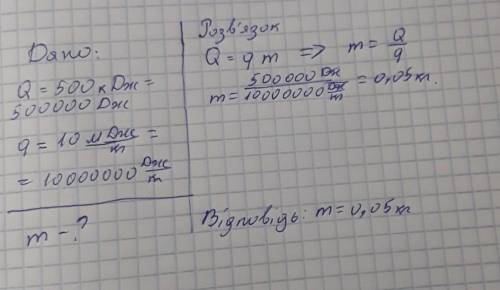 Дано:
Q = 500 кДж =
500000 Дж
q = 10 мДж/m =
= 10000000 Дж/m
m - ?
Розв'язок
Q = q m => m = Q/q
m = 500000 Дж / 10000000 Дж/m = 0,05 кг.
Відповідь: m = 0,05 кг